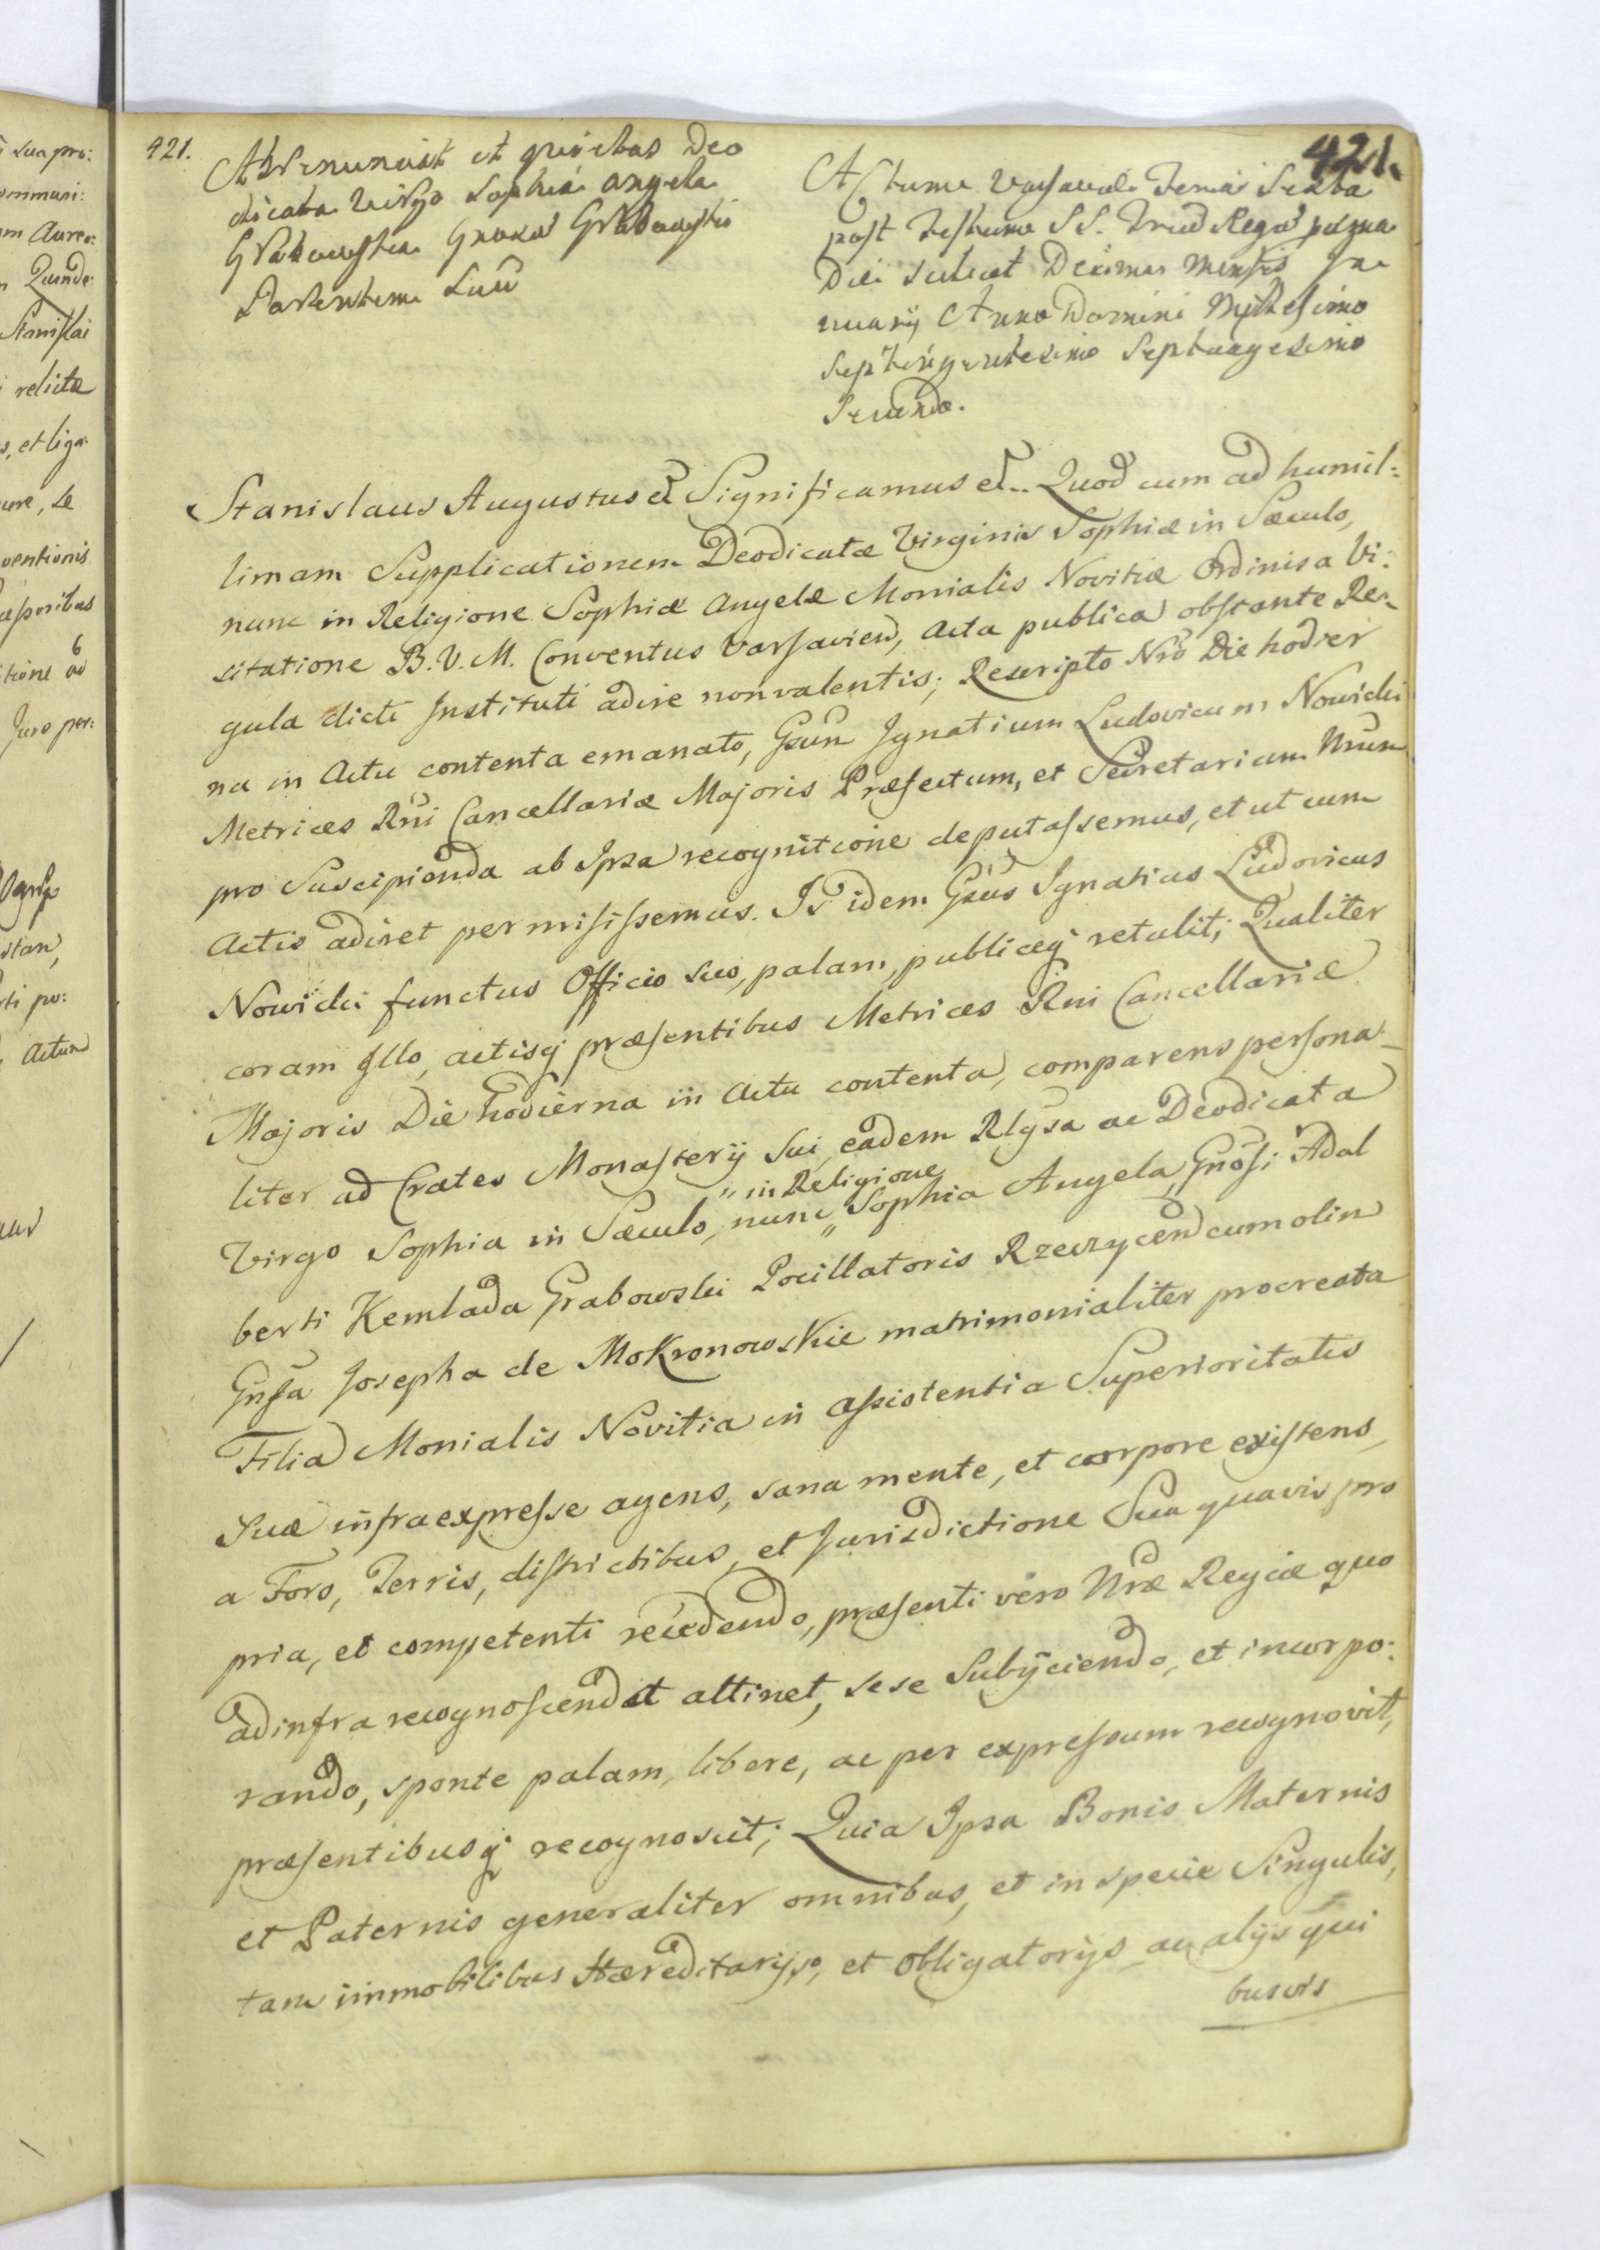 421.
421.
Abrenunciat et quietas Deo
dicata Virgo Sophia Angela
Grabowska Gnoxus Grabowski
Parentem Suu
Actum Varsaviae Feria Sexta
post Festum SS. Trium Regum proxma
Die scilicet Decima Mensis Ja
nuarij Anno Domini Millesimo
Septingentesimo Septuagesimo
Secundo.
Stanislaus Augustus et Significamus et.. Quod cum ad humil:
limam Supplicationem Deodicatæ Virginis Sophiæ in Sæculo,
nunc in Religione Sophiæ Angelæ Monialis Novitiæ Ordinis a Vi:
sitatione B.V.M. Conventus Varsavien, Acta publica obstante Re:
gula dicti Instituti adire non valentis; Rescripto Nro Die hodier
na in Actu contenta emanato, Gsum Ignatium Ludovicum Nowicki
Metrices Rni Cancellariæ Majoris Præfectum, et Secretarium Nrum
pro Suscipienda ab Ipsa recognitione deputassemus, et ut cum
Actis adiret permisissemus. Is idem Gsus Ignatius Ludovicus
Nowicki functus Officio suo, palam, publiceq retulit; Qualiter
coram Illo, actisq præsentibus Metrices Rni Cancellariæ
Majoris Die hodierna in Actu contenta, comparens persona
liter ad Crates Monasterij Sui, eadem Rlgsa ac Deodicata
" in Religione
Virgo Sophia in Sæculo, nunc " Sophia Angela, Gnosi Adal
berti Kemlada Grabowski Pocillatoris Rzeczycen cum olim
Gnsa Josepha de Mokronowskie matrimonialiter procreata
Filia Monialis Novitia in Assistentia Superioritatis
Suæ infraexpresse agens, sana mente, et corpore existens,
a Foro, Terris, districtibus, et Jurisdictione Sua quavis pro
pria, et competenti recedendo, præsenti vero Nræ Regiæ quo
ad infra recognoscendat attinet, sese Subijciendo, et incorpo:
rando, sponte palam, libere, ac per expressum recognovit,
præsentibusq recognoscit; Quia Ipsa Bonis Maternis
et Paternis generaliter omnibus, et in specie Singulis,
tam immobilibus Hæreditarijs, et Obligatorijs, ac alijs qui
busvis